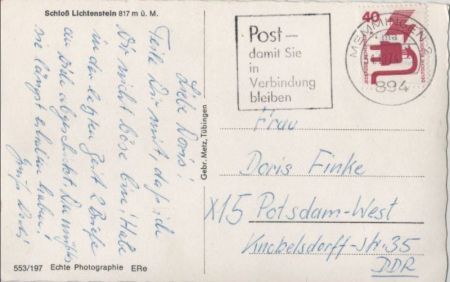 Schloß Lichtenstein 817 m ü. M.
Liebe Doris!
Teile Dir mit, daß ich
Dir nicht böse bin! Habe
in der letzten Zeit 2 Briefe
an Dich abgeschickt. Du müßtest
sie längst erhalten haben!
Gruß
553/197 Echte Photographie ERe
Gebr. Metz, Tübingen
Post –
damit Sie
in
Verbindung
bleiben
40
MEMMINGEN
894
Frau
Doris Finke
X15 Potsdam-West
Knobelsdorff-Str. 35
DDR